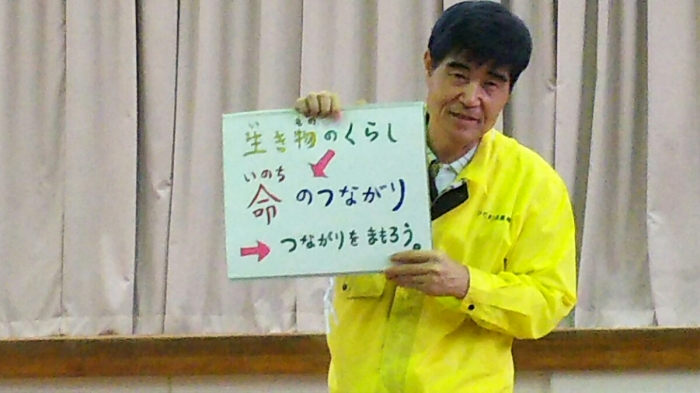 い もの
生き物のくらし
いのち
命 のつながり
➡ つながりをまもろう。